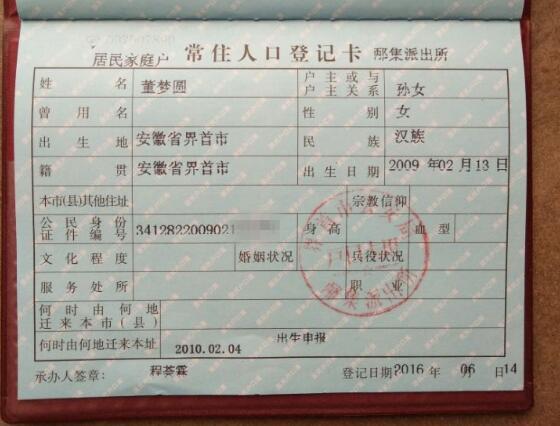 居民家庭户 常住人口登记卡 邴集派出所
姓名 董梦圆 户主或与户主关系 孙女
曾用名 性别 女
出生地 安徽省界首市 民族 汉族
籍贯 安徽省界首市 出生日期 2009 年02 月13日
本市(县)其他住址 宗教信仰
公民身份证件编号 3412822009021 身高 血型
文化程度 婚姻状况 兵役状况
服务处所 职业
何时由何地迁来本市(县)
何时由何地迁来本址 2010.02.04 出生申报
承办人签章: 程荟霖 登记日期:2016 年 06 月 日14